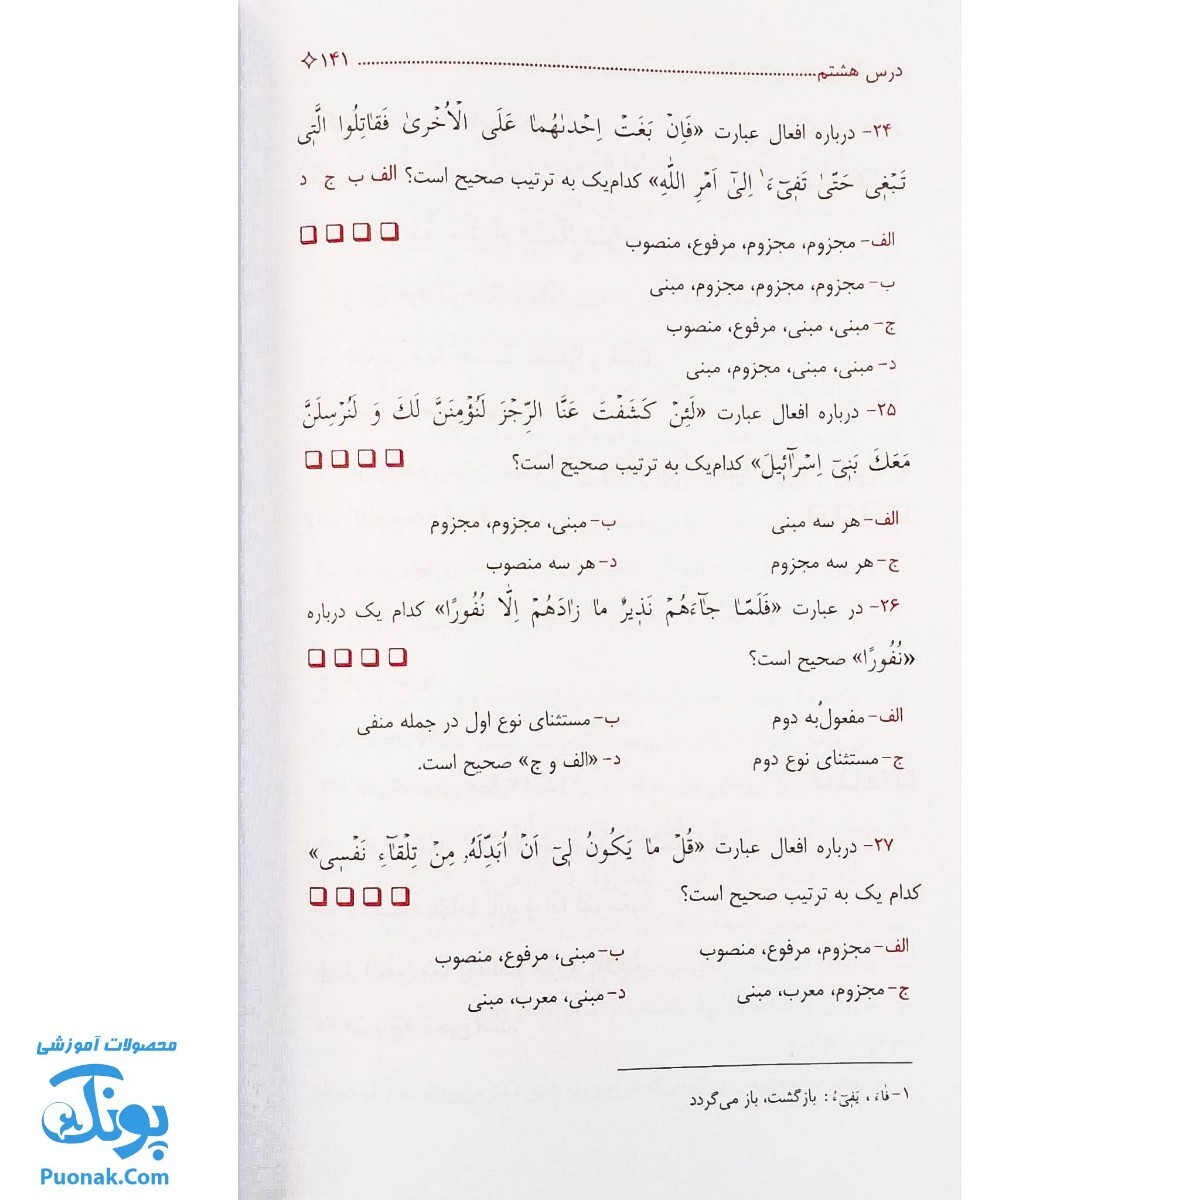 درس هشتم ........ ۱۴۱
۲۴- درباره افعال عبارت «فَاِنْ بَغَتْ اِحْدىٰهُمٰا عَلَى الْاُخْرىٰ فَقٰاتِلُوا الَّتِي
تَبْغِي حَتّىٰ تَفِيٓءَ ۱ اِلىٰٓ اَمْرِ اللّٰهِ» کدام‌یک به ترتیب صحیح است؟ الف ب ج د
الف- مجزوم، مجزوم، مرفوع، منصوب
ب- مجزوم، مجزوم، مجزوم، مبنی
ج- مبنی، مبنی، مرفوع، منصوب
د- مبنی، مبنی، مجزوم، مبنی
۲۵- درباره افعال عبارت «لَئِنْ كَشَفْتَ عَنَّا الرِّجْزَ لَنُؤْمِنَنَّ لَكَ وَ لَنُرْسِلَنَّ
مَعَكَ بَنِيٓ اِسْرٰٓائِيلَ» کدام‌یک به ترتیب صحیح است؟
الف- هر سه مبنی ب- مبنی، مجزوم، مجزوم
ج- هر سه مجزوم د- هر سه منصوب
۲۶- در عبارت «فَلَمّٰا جٰٓاءَهُمْ نَذِيرٌ مٰا زٰادَهُمْ اِلّٰا نُفُورًا» کدام یک درباره
«نُفُورًا» صحیح است؟
الف- مفعولٌ‌به دوم ب- مستثنای نوع اول در جمله منفی
ج- مستثنای نوع دوم د- «الف و ج» صحیح است.
۲۷- درباره افعال عبارت «قُلْ مٰا يَكُونُ لِيٓ اَنْ اُبَدِّلَهُ مِنْ تِلْقٰٓاءِ نَفْسِي»
کدام یک به ترتیب صحیح است؟
الف- مجزوم، مرفوع، منصوب ب- مبنی، مرفوع، منصوب
ج- مجزوم، معرب، مبنی د- مبنی، معرب، مبنی
۱- فٰاءَ ، يَفِيٓءُ : بازگشت، باز می‌گردد
محصولات آموزشی
پونک
Puonak.Com